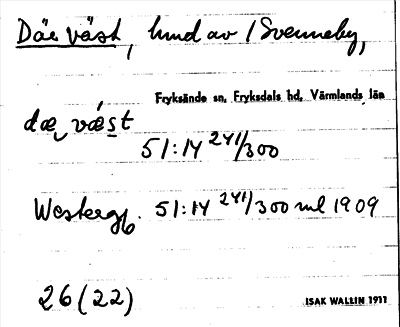 Däe väst, hmd av /Svenneby,
Fryksände sn, Fryksdals hd, Värmlands län
dæ vǽst
51:14 241/300
Westergb. 51:14 241/300 ml 1909
26 (22)
ISAK WALLIN 1911